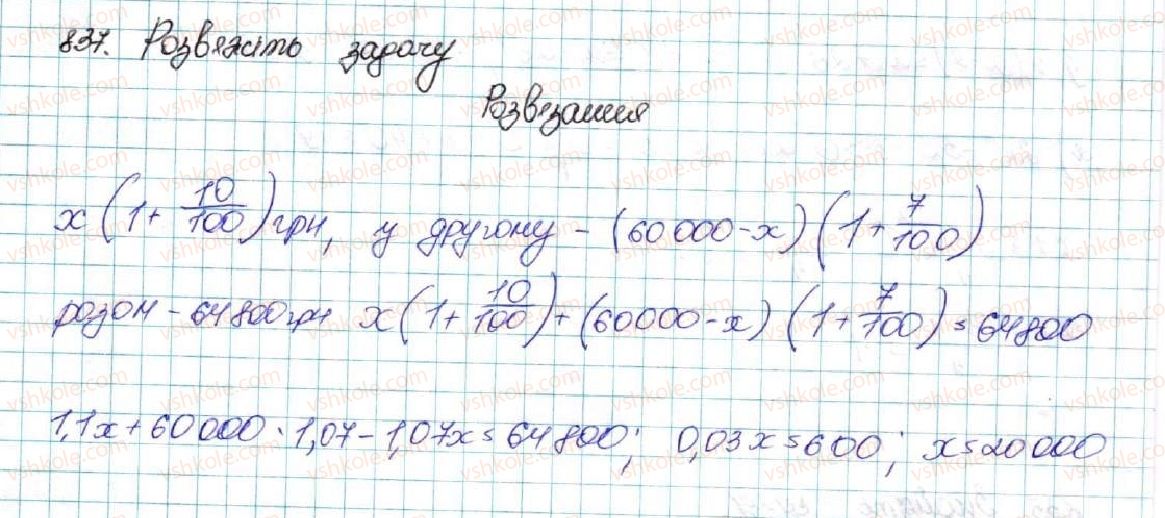 837. Розвяжіть задачу
Розвязання
x(1+10/100)грн, у другому - (60 000-x)(1+7/100)
разом - 64800грн x(1+10/100)+(60000-x)(1+7/100)=64800
1,1x+60000·1,07-1,07x=64800; 0,03x=600; x=20000